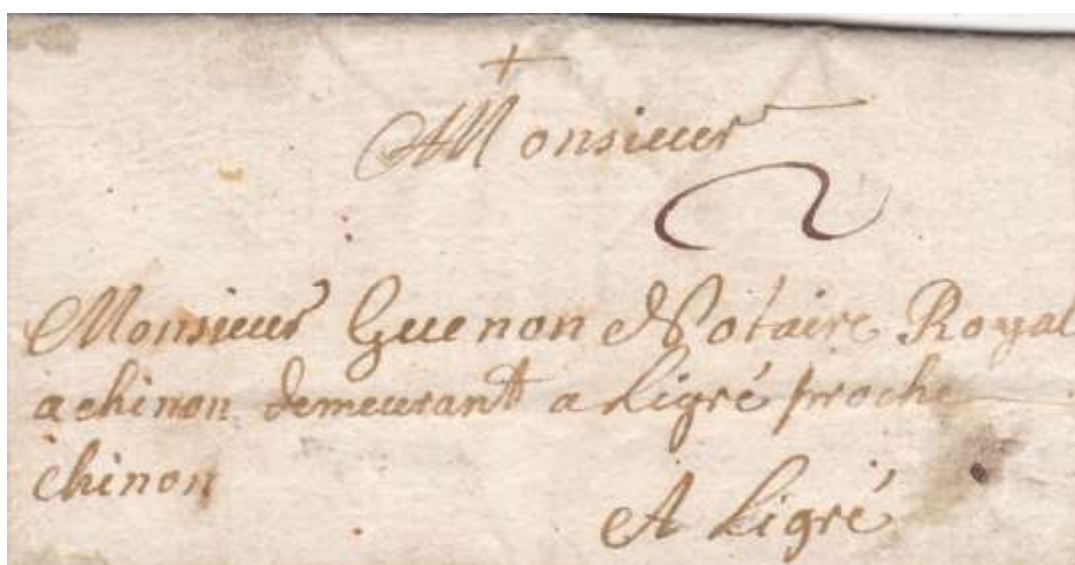 +
A Monsieur
2
Monsieur Guenon Notaire Royal
a chinon demeurant a Ligré proche
chinon
A Ligré